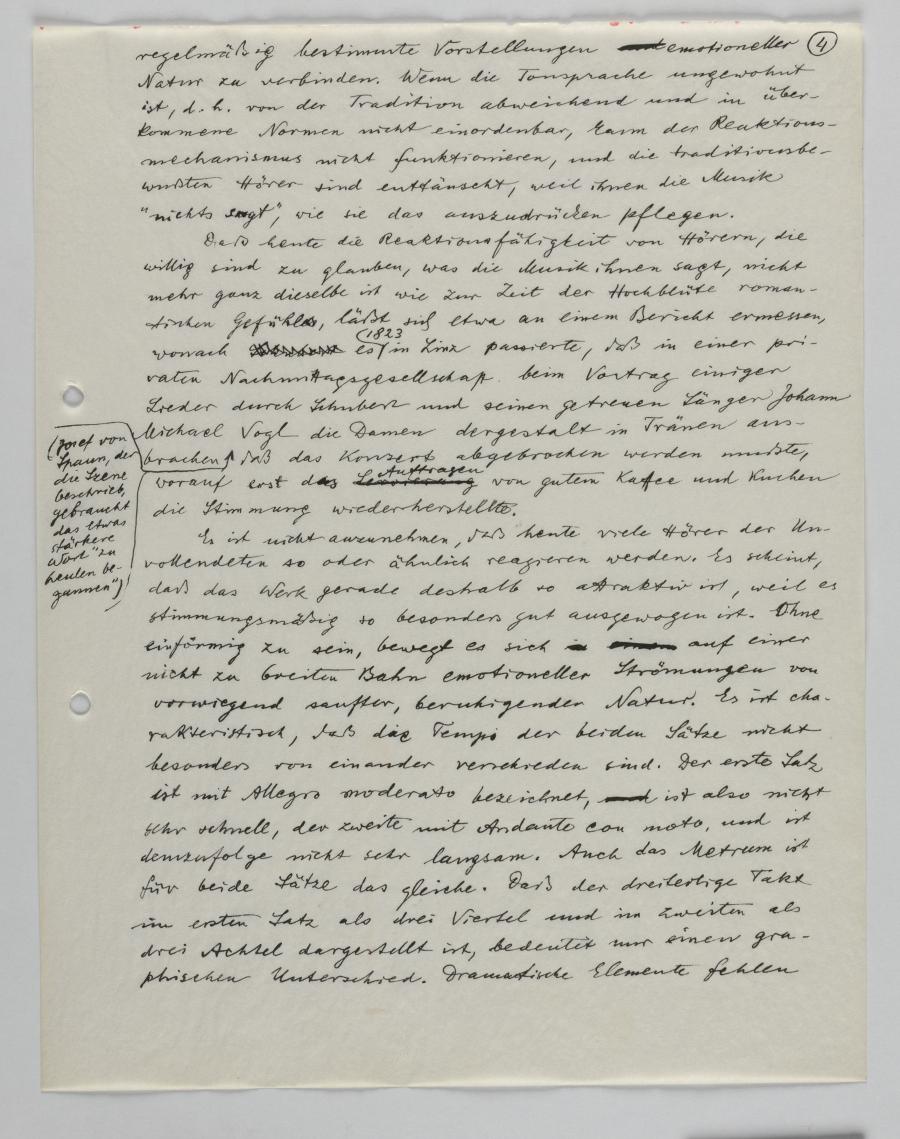 regelmäßig bestimmte Vorstellungen emotioneller 4
Natur zu verbinden. Wenn die Tonsprache ungewohnt
ist, d.h. von der Tradition abweichend und in über-
kommene Normen nicht einordenbar, kann der Reaktions-
mechanismus nicht funktionieren, und die traditionsbe-
wußten Hörer sind enttäuscht, weil ihnen die Musik
"nichts sagt", wie sie das auszudrücken pflegen.
Daß heute die Reaktionsfähigkeit von Hörern, die
willig sind zu glauben, was die Musik ihnen sagt, nicht
mehr ganz dieselbe ist wie zur Zeit der Hochblüte roman-
tischen Gefühls, läßt sich etwa an einem Bericht ermessen,
wonach es 1823 in Linz passierte, daß in einer pri-
vaten Nachmittagsgesellschaft beim Vortrag einiger
Lieder durch Schubert und seinen getreuen Sänger Johann
Michael Vogl die Damen dergestalt in Tränen aus-
brachen, daß das Konzert abgebrochen werden mußte,
(Josef von
Spaun, der
die Szene
beschrieb,
gebraucht
das etwas
stärkere
Wort "zu
heulen be-
gannen")
worauf erst das Auftragen von gutem Kaffee und Kuchen
die Stimmung wiederherstellte.
Es ist nicht anzunehmen, daß heute viele Hörer der Un-
vollendeten so oder ähnlich reagieren werden. Es scheint,
daß das Werk gerade deshalb so attraktiv ist, weil es
stimmungsmäßig so besonders gut ausgewogen ist. Ohne
einförmig zu sein, bewegt es sich auf einer
nicht zu breiten Bahn emotioneller Strömungen von
vorwiegend sanfter, beruhigender Natur. Es ist cha-
rakteristisch, daß die Tempi der beiden Sätze nicht
besonders von einander verschieden sind. Der erste Satz
ist mit Allegro moderato bezeichnet, ist also nicht
sehr schnell, der zweite mit Andante con moto, und ist
demzufolge nicht sehr langsam. Auch das Metrum ist
für beide Sätze das gleiche. Daß der dreiteilige Takt
im ersten Satz als drei Viertel und im zweiten als
drei Achtel dargestellt ist, bedeutet nur einen gra-
phischen Unterschied. Dramatische Elemente fehlen